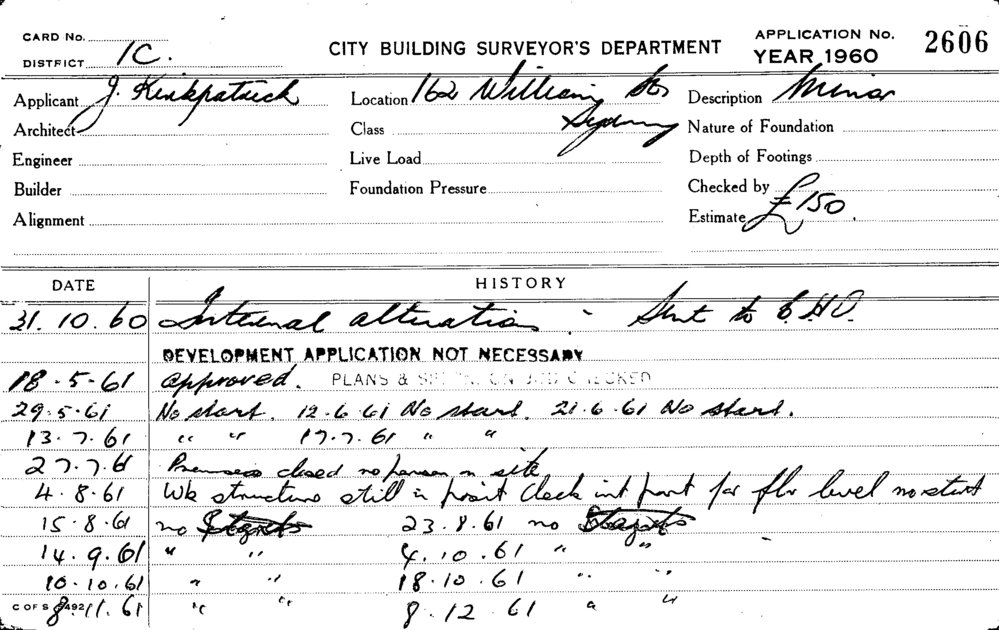 CARD No.
DISTRICT 1C.
CITY BUILDING SURVEYOR'S DEPARTMENT
APPLICATION No. 2606
YEAR 1960
Applicant J. Kirkpatrick Location 162 William St Description Minor
Architect Class Sydney Nature of Foundation
Engineer Live Load Depth of Footings
Builder Foundation Pressure Checked by
Alignment Estimate £150.
DATE HISTORY
31.10.60 Internal alterations - Sent to C.H.O.
DEVELOPMENT APPLICATION NOT NECESSARY
18-5-61 approved. PLANS & CHECKED
29.5.61 No start. 12.6.61 No start. 21.6.61 No start.
13.7.61 " " 17.7.61 " "
27.7.61 Premises closed no person on site
4.8.61 structure still in front Check int front for flr level no start
15.8.61 no 23.8.61 no
14.9.61 " " 4.10.61 " "
10.10.61 " " 18.10.61 " "
C OF S 492 8.11.61 " " 8.12.61 " "